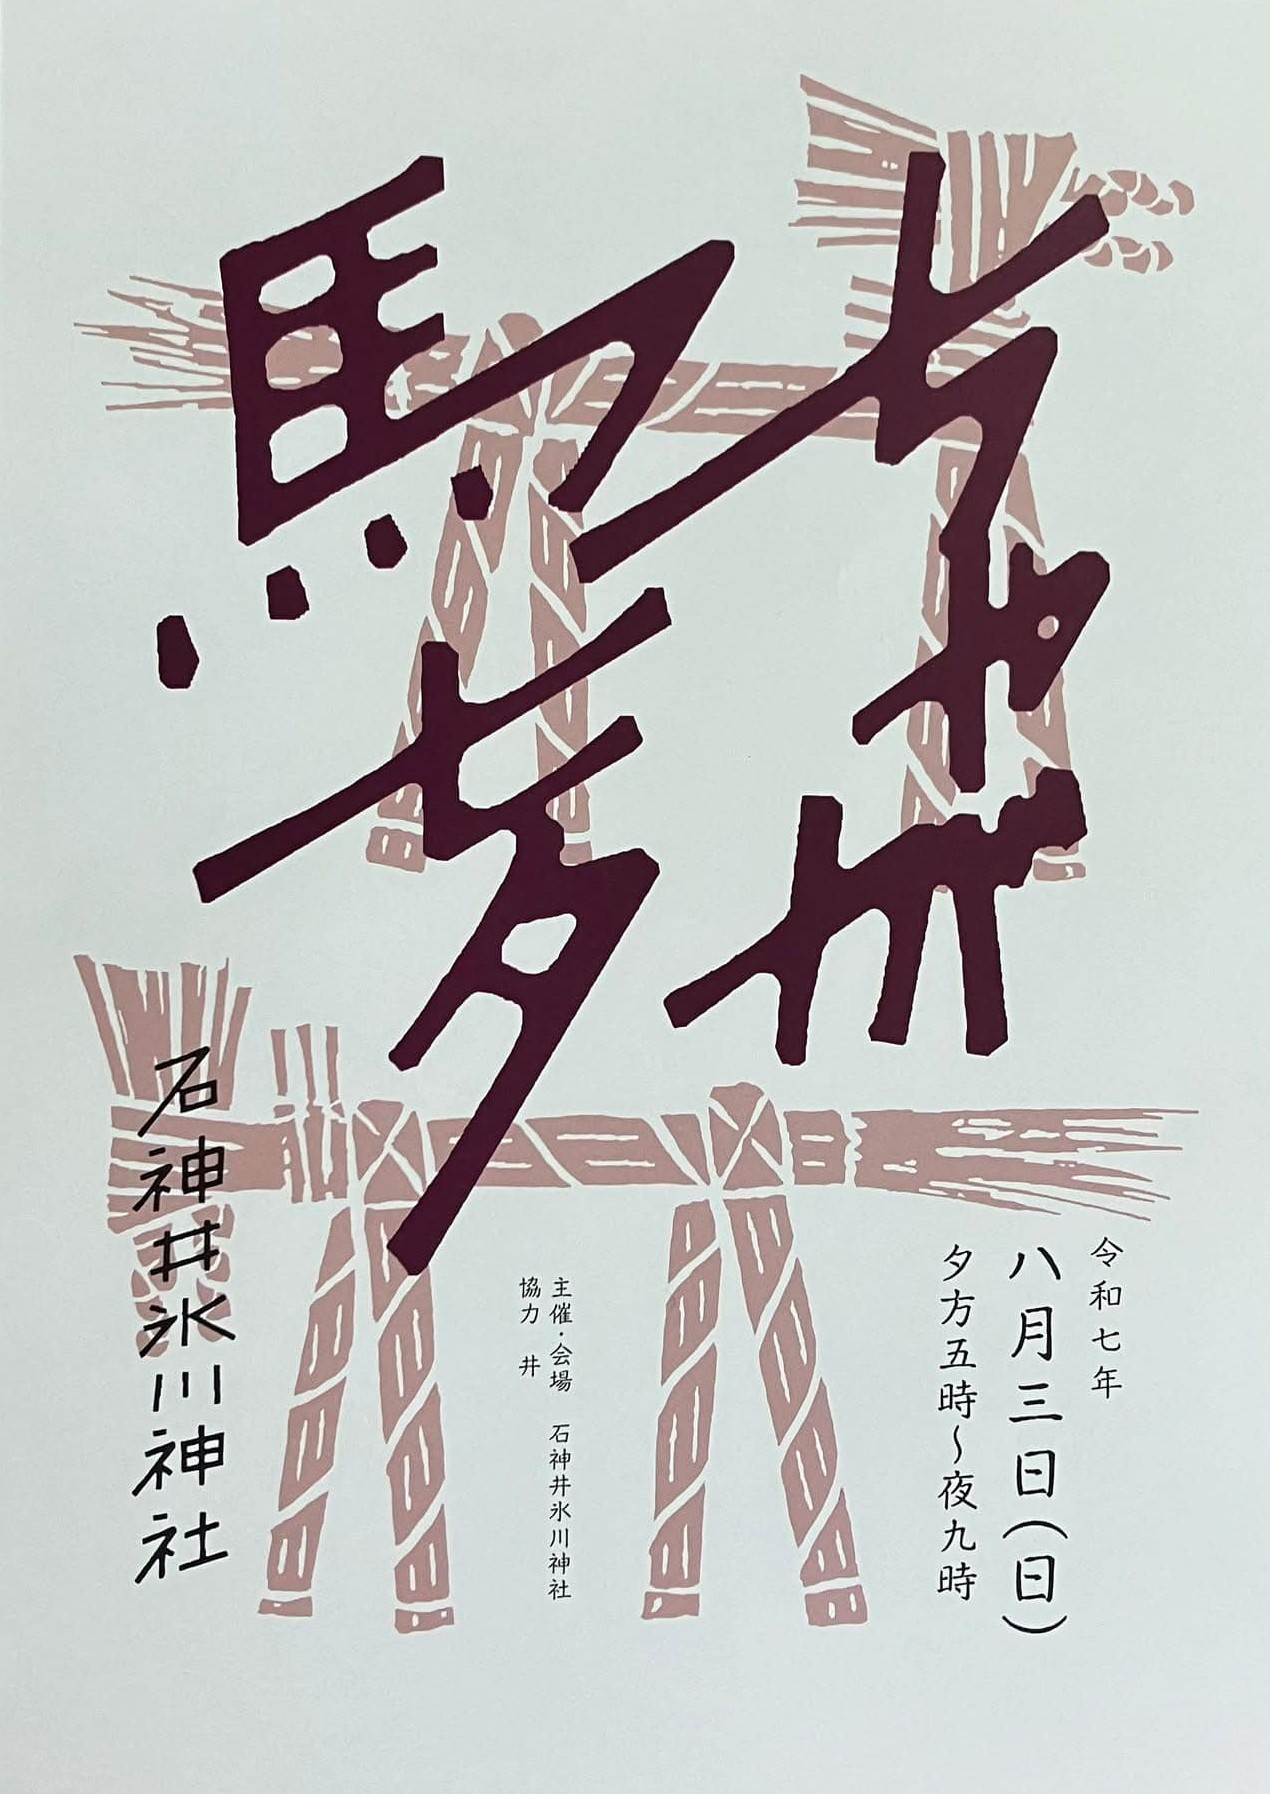 馬
七夕
令和七年
八月三日(日)
夕方五時～夜九時
主催・会場　石神井氷川神社
協力　井
石神井氷川神社